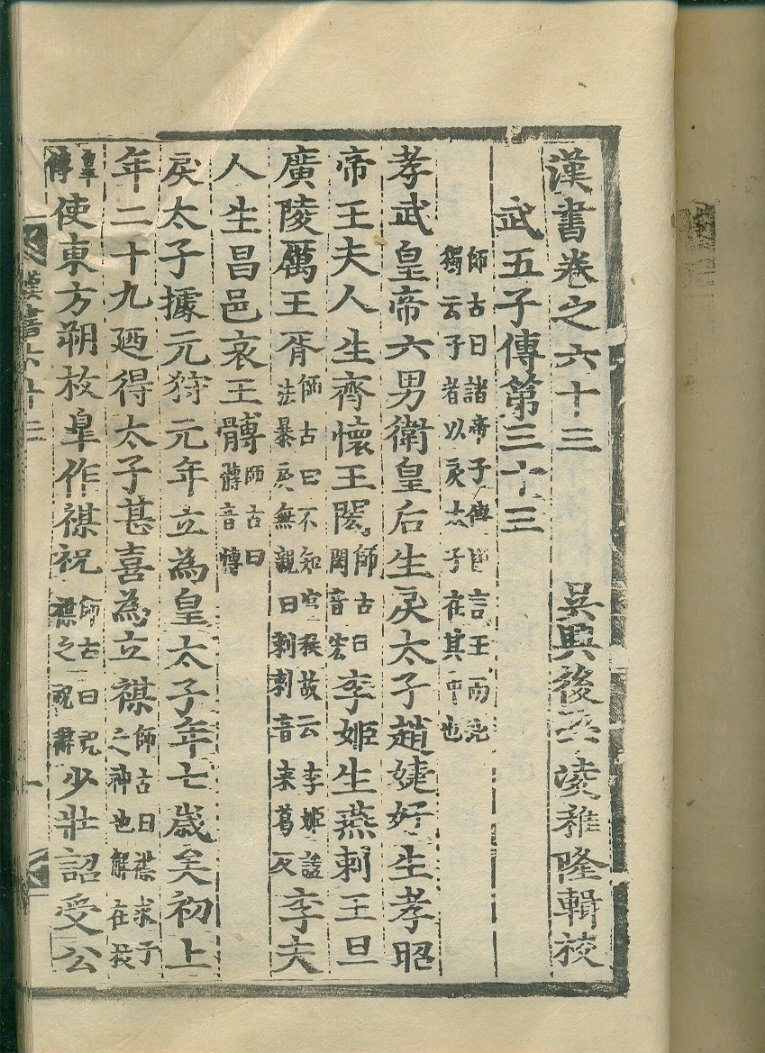 漢書卷之六十三
吳興後學凌稚隆輯校
武五子傳第三十三
師古曰諸帝子傳皆言王而此
獨云子者以戾太子在其中也
孝武皇帝六男衛皇后生戾太子趙婕妤生孝昭
帝王夫人生齊懷王閎師古曰閎音宏李姬生燕剌王旦
廣陵厲王胥師古曰不知官秩故云李姬謚法暴戾無親曰剌剌音來葛反李夫
人生昌邑哀王髆師古曰髆音博
戾太子據元狩元年立為皇太子年七歲矣初上
年二十九廼得太子甚喜為立禖師古曰禖求子之神也解在枚
皐傳使東方朔枚皐作禖祝師古曰祝禖之祝辭少壯詔受公
漢書六十三
一